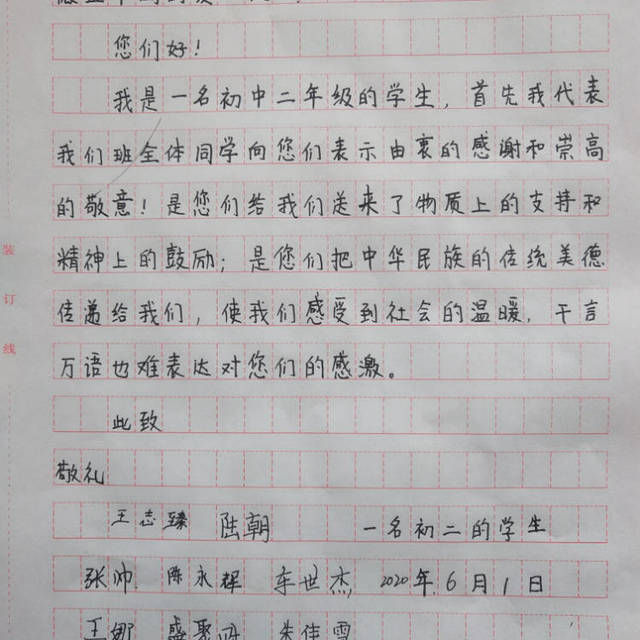 您们好！
我是一名初中二年级的学生，首先我代表
我们班全体同学向您们表示由衷的感谢和崇高
的敬意！是您们给我们送来了物质上的支持和
精神上的鼓励；是您们把中华民族的传统美德
传递给我们，使我们感受到社会的温暖，千言
万语也难表达对您们的感激。
此致
敬礼
王志臻 陆朝 一名初二的学生
张帅 陈永辉 车世杰 2020年6月1日
王娜 盛聚 朱佳雪
装
订
线